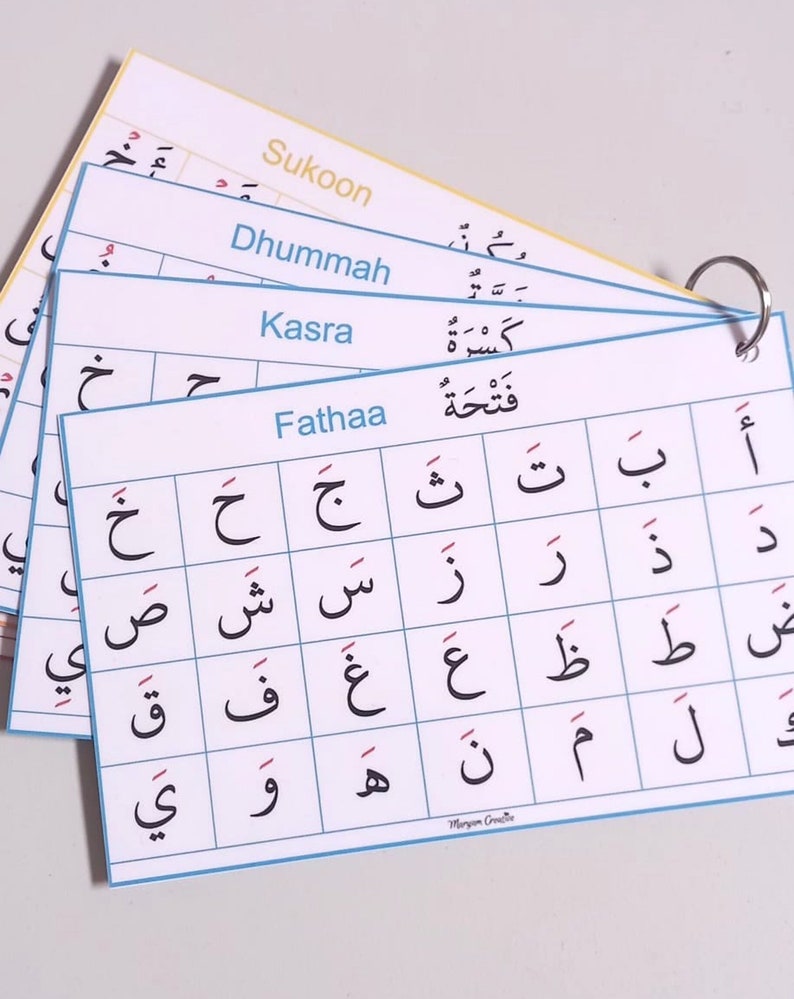 Sukoon
Dhummah
Kasra كَسْرَةٌ
خ ح
Fathaa فَتْحَةٌ
أَ بَ تَ ثَ جَ حَ خَ
دَ ذَ رَ زَ سَ شَ صَ
ضَ طَ ظَ عَ غَ فَ قَ
لَ مَ نَ هَ وَ يَ
Maryam Creative